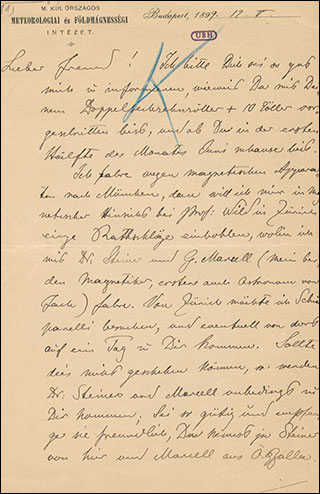 M. KIR. ORSZÁGOS
METEOROLOGIAI és FÖLDMÁGNESSÉGI
INTÉZET.
Budapest, 1899. 12. V.
Lieber Freund! Ich bitte Dich sei so gut
mich zu informiren, wie weit Du mit Dei
nem + 10 Zöller vor
geschritten bist, und ob Du in der ersten
Hälfte des Monates Juni zuhause bist.
Ich fahre wegen magnetischen Appara
ten nach München, dann will ich mir in mag
netischer Hinsicht bei Prof. Wild in Zürich
einige Rathschläge einhohlen, wohin ich
mit Dr. Steiner und G. Marcell (mein bei
den Magnetiker, erstere auch Astronom von
Fach) fahre. Von Zürich möchte ich Schia
parelli besuchen, und eventuell von dort
auf ein Tag zu Dir kommen. Sollte
dies nicht geschehen können, so werden
Dr. Steiner und Marcell unbedingt zu
Dir kommen. Sei so gütig und empfan
ge sie freundlich, Du kennst ja Steiner
von hier und Marcell aus O'Gyalla